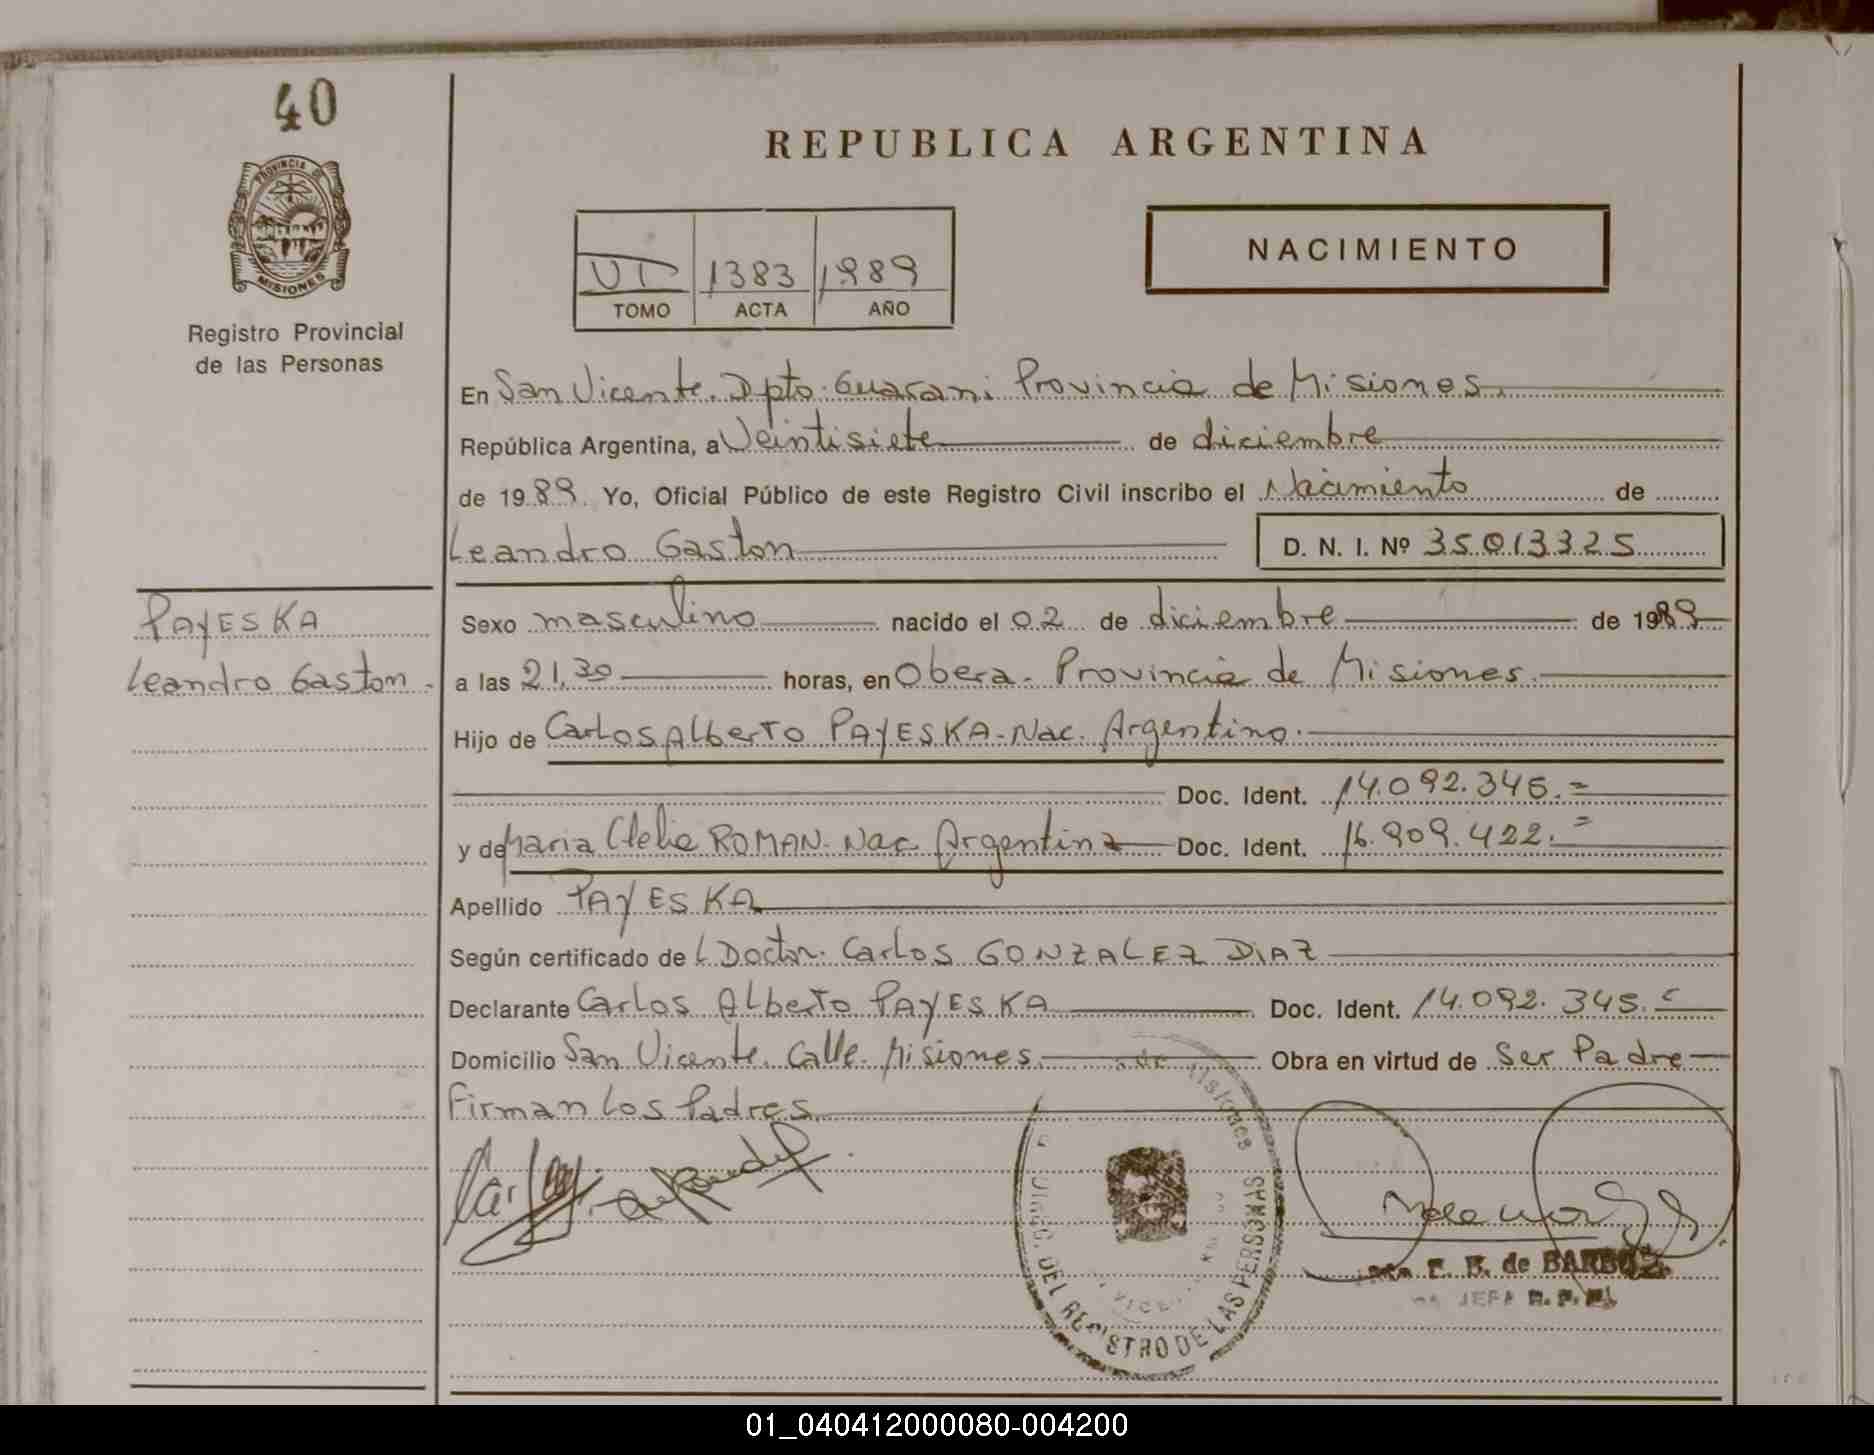 40
PROVINCIA DE
MISIONES
Registro Provincial
de las Personas
REPUBLICA ARGENTINA
VI 1383 1989
TOMO ACTA AÑO
NACIMIENTO
En San Vicente. Dpto. Guarani Provincia de Misiones.
República Argentina, a Veintisiete de diciembre
de 1989. Yo, Oficial Público de este Registro Civil inscribo el Nacimiento de
Leandro Gaston D. N. I. Nº 35013325
PAYESKA
Leandro Gaston.
Sexo masculino nacido el 02 de diciembre de 1989
a las 21,30 horas, en Obera. Provincia de Misiones.
Hijo de Carlos Alberto PAYESKA. Nac. Argentino.
Doc. Ident. 14.092.345.=
y de Maria Clelia ROMAN. Nac Argentina Doc. Ident. 16.909.422.=
Apellido PAYESKA
Según certificado del Doctor. Carlos GONZALEZ DIAZ
Declarante Carlos Alberto PAYESKA Doc. Ident. 14.092.345.=
Domicilio San Vicente. Calle. Misiones. Obra en virtud de Ser Padre
Firman Los Padres.
Misiones
DEL REGISTRO DE LAS PERSONAS
E. B. de BARBOZA
JEFA R. P.
01_040412000080-004200